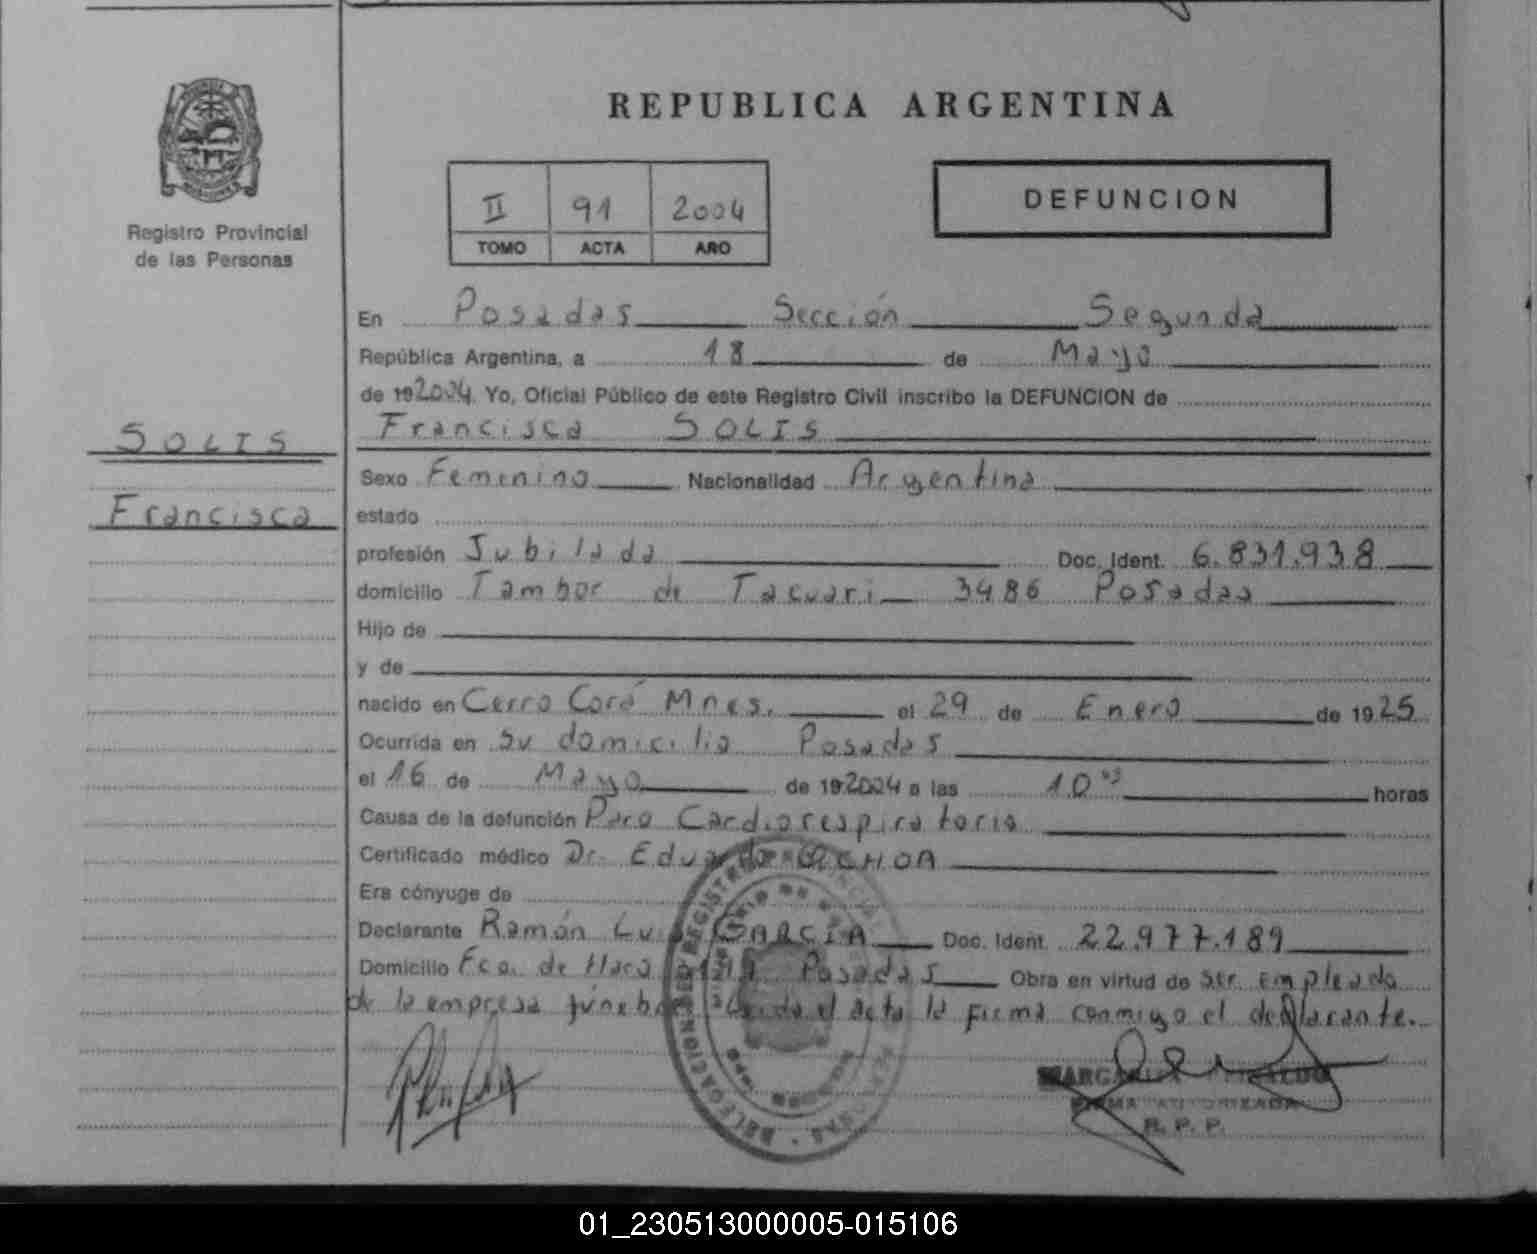 REPUBLICA ARGENTINA
Registro Provincial
de las Personas
II 91 2004
TOMO ACTA AÑO
DEFUNCION
En Posadas Sección Segunda
República Argentina, a 18 de Mayo
de 192004. Yo, Oficial Público de este Registro Civil inscribo la DEFUNCION de
SOLIS
Francisca SOLIS
Sexo Femenino Nacionalidad Argentina
Francisca
estado
profesión Jubilada Doc. Ident. 6.831.938
domicilio Tambor de Tacuari 3486 Posadas
Hijo de
y de
nacido en Cerro Corá Mnes. el 29 de Enero de 1925
Ocurrida en su domicilio Posadas
el 16 de Mayo de 192004 a las 10 horas
Causa de la defunción Paro Cardiorespiratorio
Certificado médico Dr. Eduardo OCHOA
Era cónyuge de
Declarante Ramón GARCIA Doc. Ident. 22.977.189
Domicilio Fco. de Haro Posadas Obra en virtud de ser empleado
de la empresa fúnebre Leida el acta la firma conmigo el declarante.
FIRMA AUTORIZADA
R. P. P.
01_230513000005-015106